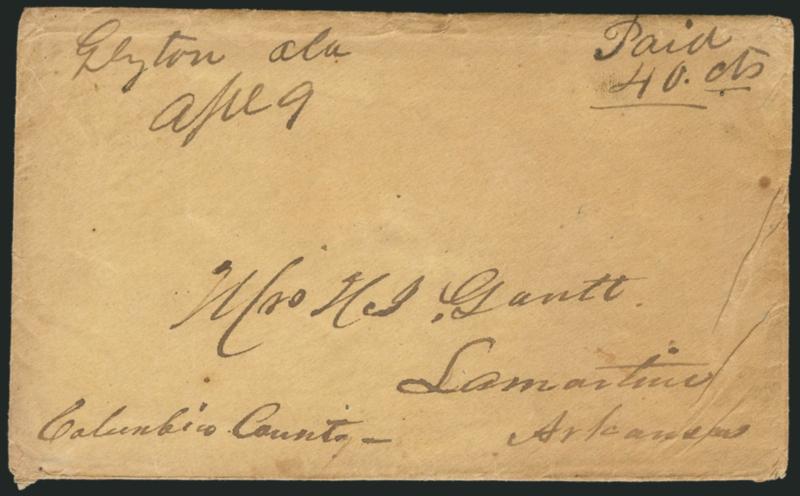 Elyton Ala
Apl 9
Paid
40. cts
Mrs H J Gantt.
Lamartine
Columbia County
Arkansas